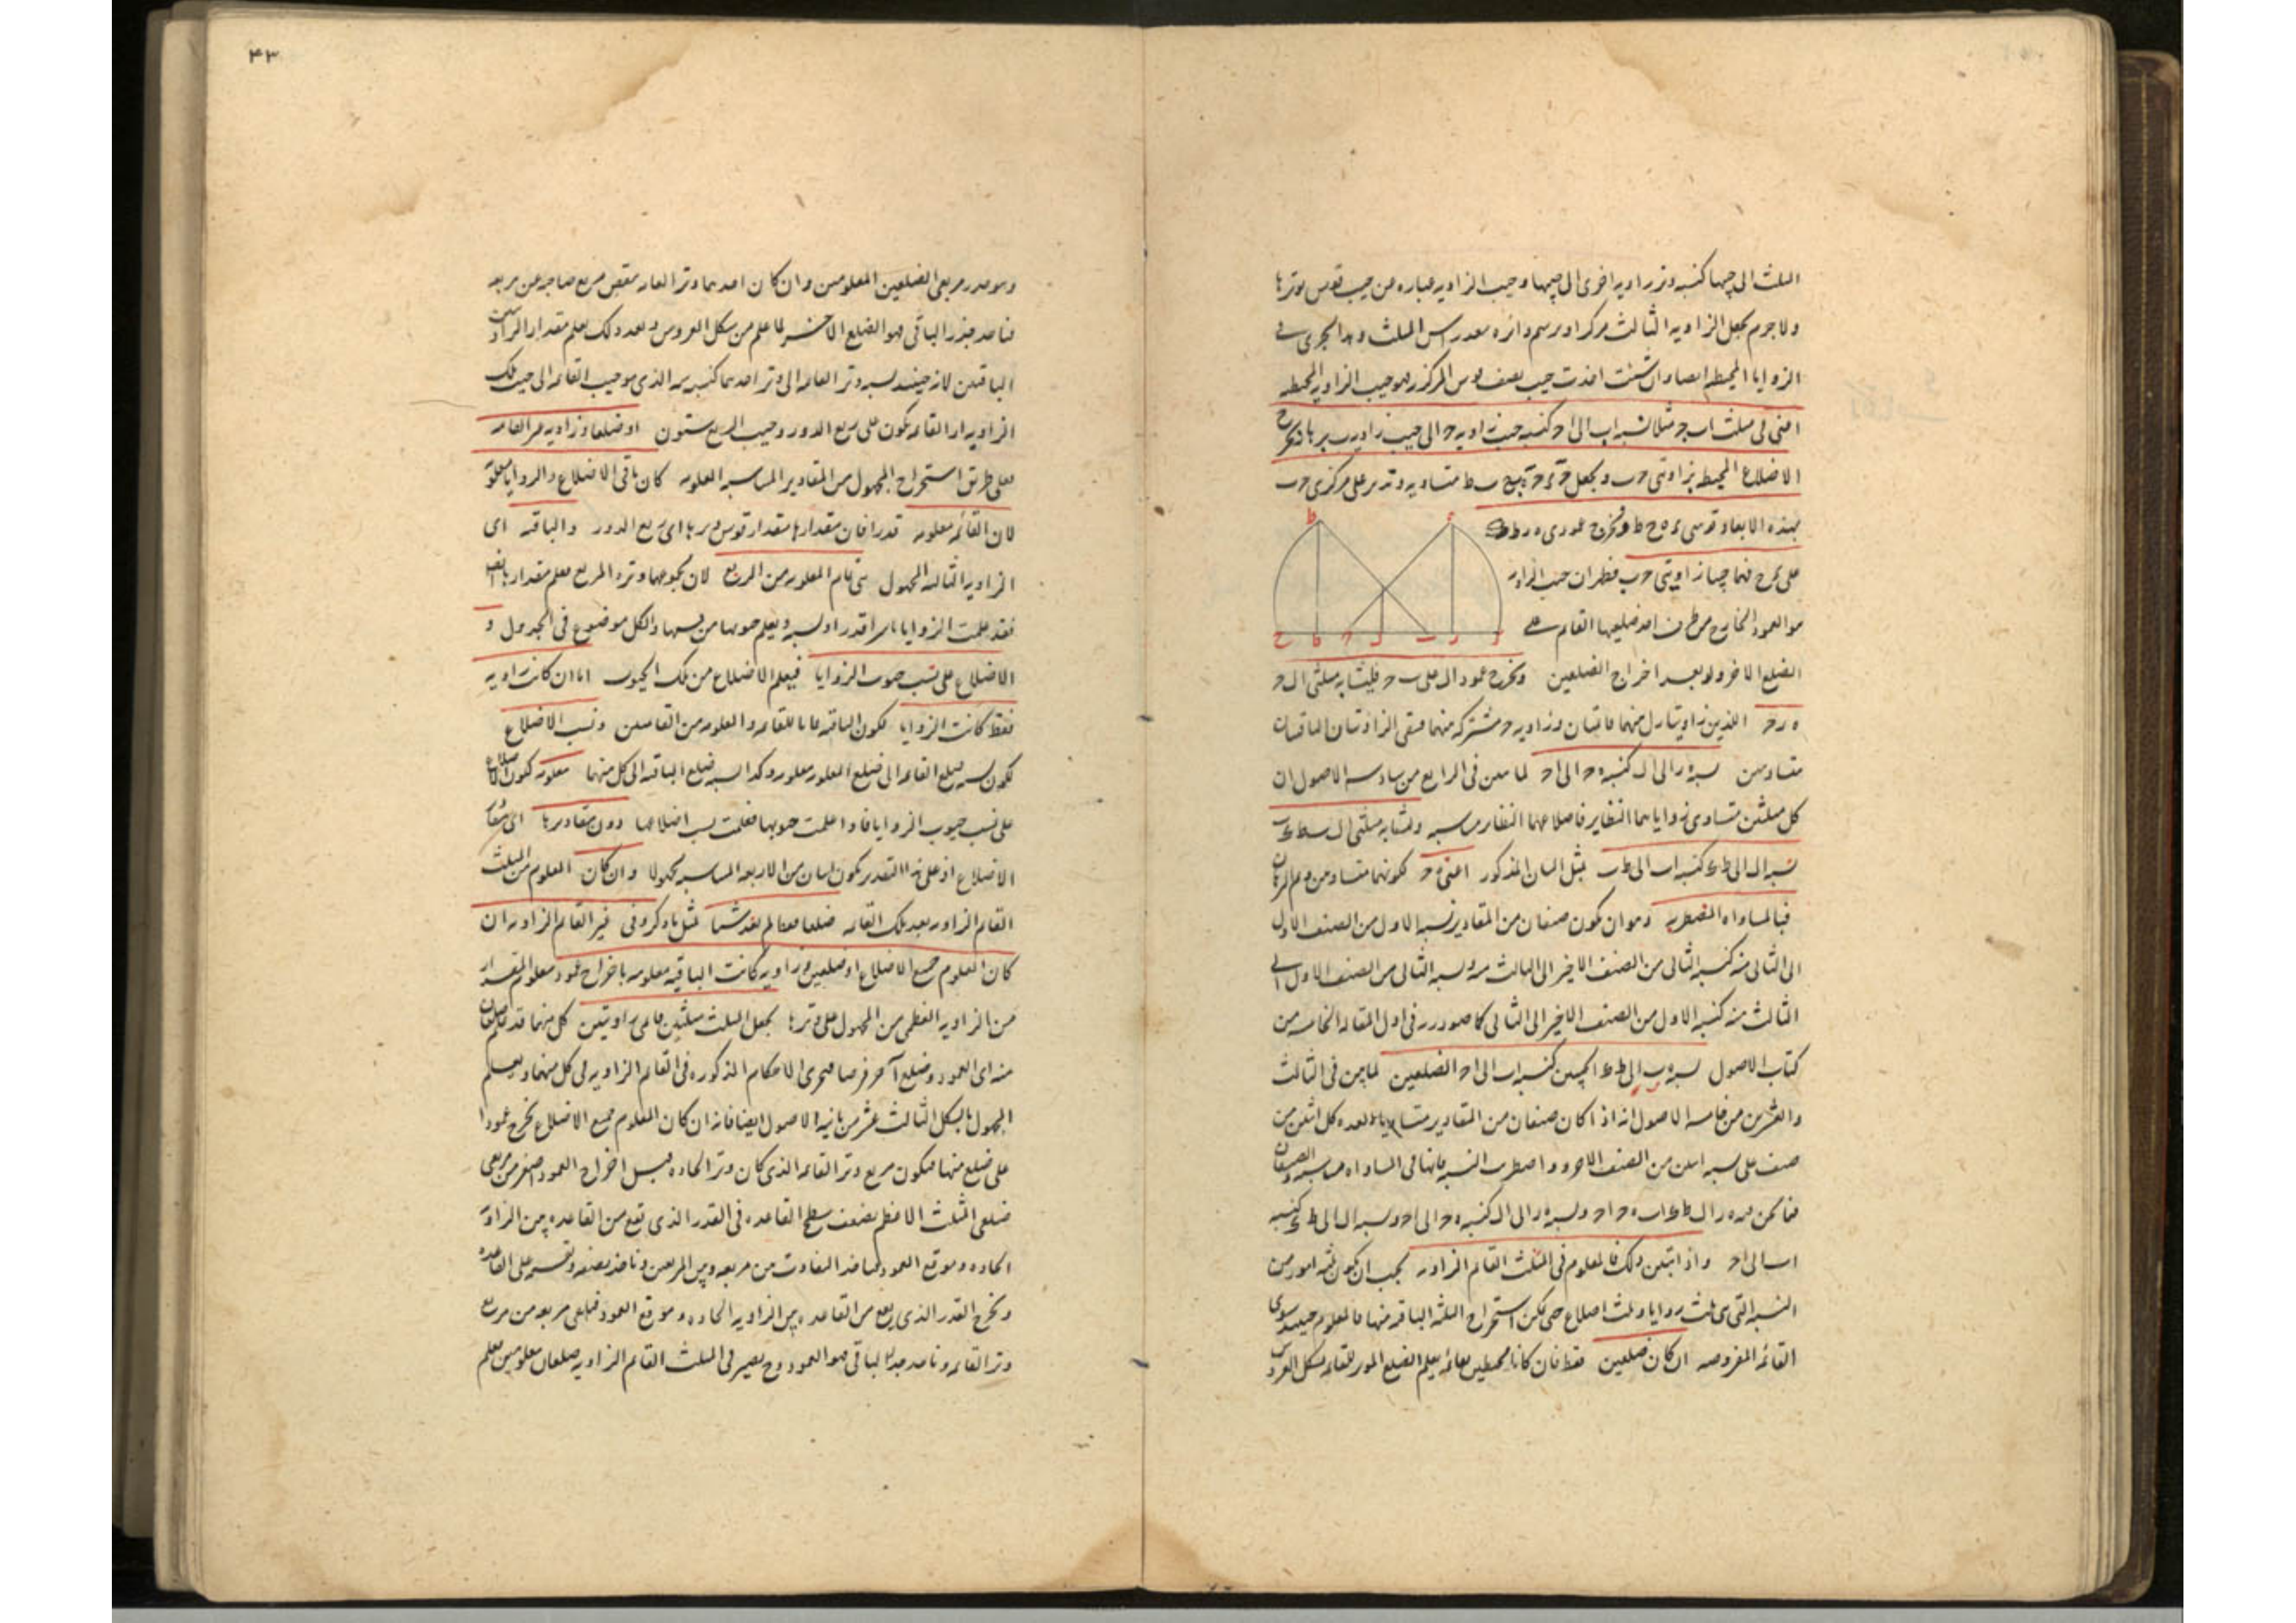 المثلث الى جيبها كنسبة وتر زاويه اخرى الى جيبها وجيب الزاويه عباره من جيب قوس توترها
ولاجرم يجعل الزاويه الثالث مركزا ويرسم دائره راس المثلث وهذا يجرى فى
الزوايا المحيطه ايضا وان شئت اخذت جيب نصف قوس المركز فهو جيب الزاويه المحيطه
اعنى فى مثلث اب ح مثلا نسبه اب الى ا ح كنسبه جيب زاويه ح الى جيب زاويه ب
الاضلاع المحيط بزاويتى ح ب ويجعل متساويه وندير على مركزى ح ب
بهذه الابعاد قوسى ونخرج عمودى
على فهما جيبا زاويتى ح ب جيب الزاويه
هو العمود الخارج من طرف احد ضلعيها القائم على
الضلع الاخر ولو بعد اخراج الضلعين ونخرج عمود ا ل على ب ح فليشابه مثلثى ا ل ح
ه ر ح اللذين زاويتا ر ل منهما قائمتان وزاويه ح مشتركه منهما فتبقى الزاويتان الباقيتان
متساويتين نسبه ه ر الى ا ل كنسبه ه ح الى ا ح لما تبين فى الرابع من سادسه الاصول ان
كل مثلثين متساوى زواياهما النظاير فاضلاعهما النظاير متناسبه ولتشابه مثلثى
نسبه ا ل الى ط ك كنسبه اب الى ط ب بمثل البيان المذكور اعنى ه ح لكونهما متساويين
فبالمساواه المضطربه وهو ان يكون صنفان من المقادير نسبه الاول من الصنف الاول
الى الثانى منه كنسبه الثانى من الصنف الاخير الى الثالث منه ونسبه الثانى من الصنف الاول الى
الثالث منه كنسبه الاول من الصنف الاخير الى الثانى كما صودر فى اول المقاله الخامسه من
كتاب الاصول نسبه ه ر الى ط ك الجيبين كنسبه اب الى ا ح الضلعين لما تبين فى الثالث
والعشرين من خامسه الاصول انه اذا كان صنفان من المقادير متساويا العده كل اثنين من
صنف على نسبه اثنين من الصنف الاخر واضطربت النسبه فانها فى المساواه متناسبه
فما نحن فيه ه ر ا ل ط ك اب ه ح ا ح ونسبه ه ر الى ا ل كنسبه ه ح الى ا ح ونسبه ا ل الى ط ك كنسبه
اب الى ا ح واذ تبين ذلك فالمعلوم فى المثلث القائم الزاويه يجب ان يكون ثلثه امور من
الستة التى هى ثلث زوايا وثلث اضلاع حتى يمكن استخراج الثلثه الباقيه منها فالمعلوم حينئذ سوى
القائمه المفروضه ان كان ضلعين فقط فان كانا محيطين بقائمه يعلم الضلع الموتر للقائمه بشكل العروس
۴۳
وهو جذر مربعى الضلعين المعلومين وان كان احدهما وتر القائمه ينقص مربع صاحبه من مربعه
فناخذ جذر الباقى فهو الضلع الاخر لما علم من شكل العروس وبعد ذلك يعلم مقدار الزاويتين
الباقيتين لانه حينئذ نسبه وتر القائمه الى وتر احدهما كنسبه الذى هو جيب القائمه الى جيب تلك
الزاويه اذ القائمه يكون على ربع الدور وجيب الربع ستون او ضلعا وزاويه غير القائمه
فعلى طريق استخراج المجهول من المقادير المتناسبه المعلومه كان باقى الاضلاع والزوايا معلومة
لان القائمه معلومه قدرا فان مقدارها مقدار قوس وترها اى ربع الدور والباقيه اى
الزاويه الثالثه المجهول هى تمام المعلومه من الربع لان مجموعهما وتره الربع فعلم مقدارها ايضا
فقد علمت الزوايا باسرها قدرا ونسبه ويعلم جيوبها من نسبها والكل موضوع فى الجدول و
الاضلاع على نسب جيوب الزوايا فيعلم الاضلاع من تلك الجيوب اما ان كانت زاويه
فقط كانت الزوايا لكون الباقيه تماما للقائمه والمعلومه من القائمتين ونسب الاضلاع
لكون نسبه ضلع القائمه الى ضلع المعلومه معلومه وكذا نسبه ضلع الباقيه الى كل منهما معلومه لكون الاضلاع
على نسب جيوب الزوايا فاذا علمت جيوبها فعلمت نسب اضلاعها دون مقاديرها اى مقادير
الاضلاع اذ على هذا التقدير يكون اثنان من الاربعه المتناسبه مجهولا وان كان المعلوم من المثلث
القائم الزاويه بعد تلك القائمه ضلعا فقط لم يفد شيئا لمثل ما ذكر وفى غير القائم الزاويه ان
كان المعلوم جميع الاضلاع او ضلعين وزاويه كانت الباقيه معلومه باخراج عمود معلوم المقدار
من الزاويه العظمى من المجهول على وترها يجعل المثلث مثلثين قائمى زاويتين كل منهما قد علم ضلعان
منه اى العمود وضلع آخر فرضا فتجرى الاحكام المذكوره فى القائم الزاويه فى كل منهما ويعلم
المجهول بالشكل الثالث عشر من ثانيه الاصول ايضا فانه ان كان المعلوم جميع الاضلاع نخرج عمودا
على ضلع منها فيكون مربع وتر القائمه الذى كان وتر الحاده قبل اخراج العمود اصغر من مربعى
ضلعى المثلث الاعظم بضعف سطح القاعده فى القدر الذى يقع من القاعده بين الزاويه
الحاده وموقع العمود فناخذ التفاوت من مربعه وبين المربعين وناخذ نصفه ونقسمه على القاعده
ونخرج القدر الذى يقع من القاعده بين الزاويه الحاده وموقع العمود فنلقى مربعه من مربع
وتر القائمه وناخذ جذر الباقى فهو العمود وح يصير فى المثلث القائم الزاويه ضلعان معلومين فعلم